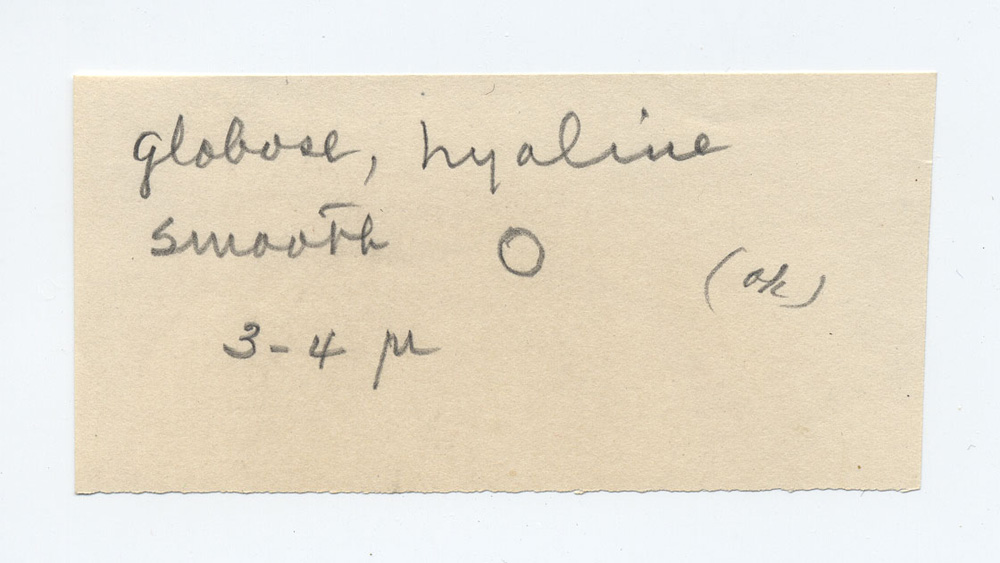 globose, hyaline
smooth
(ok)
3-4 μ